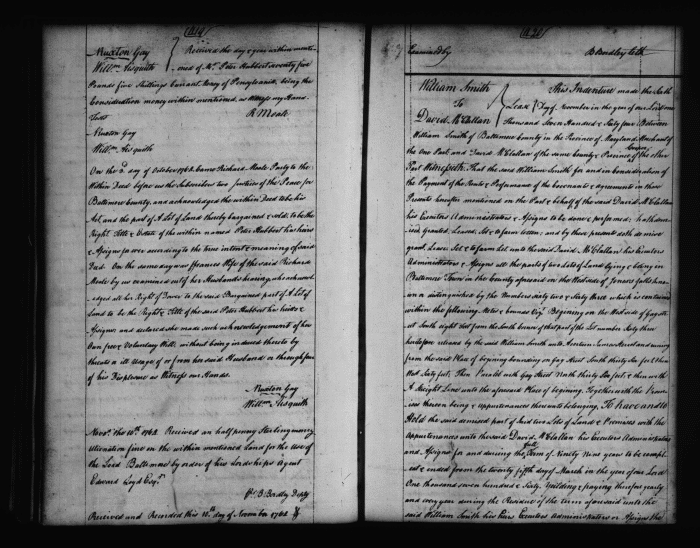 Nuxton Gay
Willm Asquith
Received the day & year within menti-
oned of Mr. Peter Hubbert seventy five
Pounds five Shillings Current Money of Pensylvania being the
Consideration money within mentioned, as witness my Hand
Test
R Moale
Nuxton Gay
Willm Asquith
On the 3d day of October 1764 Came Richard Moale Party to the
Within Deed before us the Subscribers two Justices of the Peace for
Baltimore County, and acknowledged the within Deed to be his
Act, and the part of A Lot of Land thereby bargained & sold, to be the
Right Title & Estate of the within named Peter Hubbert his heirs
& Assigns for ever according to the true intent & meaning of said
Deed. On the same day was Frances Wife of the said Richard
Moale by us examined out of her Husbands hearing, who acknowl-
edged all her Right of Dower to the said Bargained part of A Lot of
Land to be the Right & Title of the said Peter Hubbert his heirs &
Assigns and declared she made such acknowledgement of her
Own free & Voluntary Will, without being induced thereto by
threats or ill Usage of or from her said Husband or through fear
of his Displeasure as Witness our Hands.
Nuxton Gay
Willm Asquith
Novr. the 10th 1764 Received an half penny Sterling money
alienation fine on the within mentioned Land for the Use of
the Lord Baltimore by order of his Lordships Agent
Edward Loyd Esqr.
Pr. B. Bordley Depty
Received and Recorded this 10th day of November 1764
Examined by
B Bordley Clk
William Smith
To
David McClallan
Lease
This Indenture made the Sixth
Day of November in the year of our Lord one
Thousand Seven Hundred & Sixty four Between
William Smith of Baltimore County in the Province of Maryland Merchant of
the One Part and David McClallan of the same County & Province of the other
Part Witnesseth. That the said William Smith for and in Consideration of
the Payment of the Rents & Performance of the Covenants & agreements in these
Presents hereafter mentioned on the Part & behalf of the said David McClallan
his Executors Administrators & Assigns to be done & performed; hath demi-
sed granted Leased, Set & to farm letten; and by these presents doth demise
grant Lease Set & to farm let unto the said David McClallan his Executors
Administrators & Assigns all the parts of two Lots of Land lying & being in
Baltimore Town in the County aforesaid on the West side of Joneses falls kno-
wn & distinguished by the Numbers sixty two & Sixty three which is contained
within the following Metes & bounds Vizt. Begining on the West side of Gay stre-
et South eight feet from the South bound of that part of the Lot number Sixty three
heretofore released by the said William Smith unto and runing
from the said Place of begining bounding on Gay Street South thirty Six feet then
West Sixty feet, Then Parallel with Gay Street North thirty Six feet, & then with
A Straight Line unto the aforesaid Place of begining. Together with the Prem-
ises thereon being & appurtenances thereunto belonging, To have and to
Hold the said demised part of the said two Lots of Land & Premises with the
Appurtenances unto the said David McClallan his Executors Administrators
and Assigns for and during the full Term of Ninety Nine years to be compl-
eat & ended from the twenty fifth day of March in the year of our Lord
One thousand seven hundred & Sixty. Yeilding & paying therefore yearly
and every year during the Residue of the term aforesaid unto the
said William Smith his Heirs Executors Administrators or Assigns the